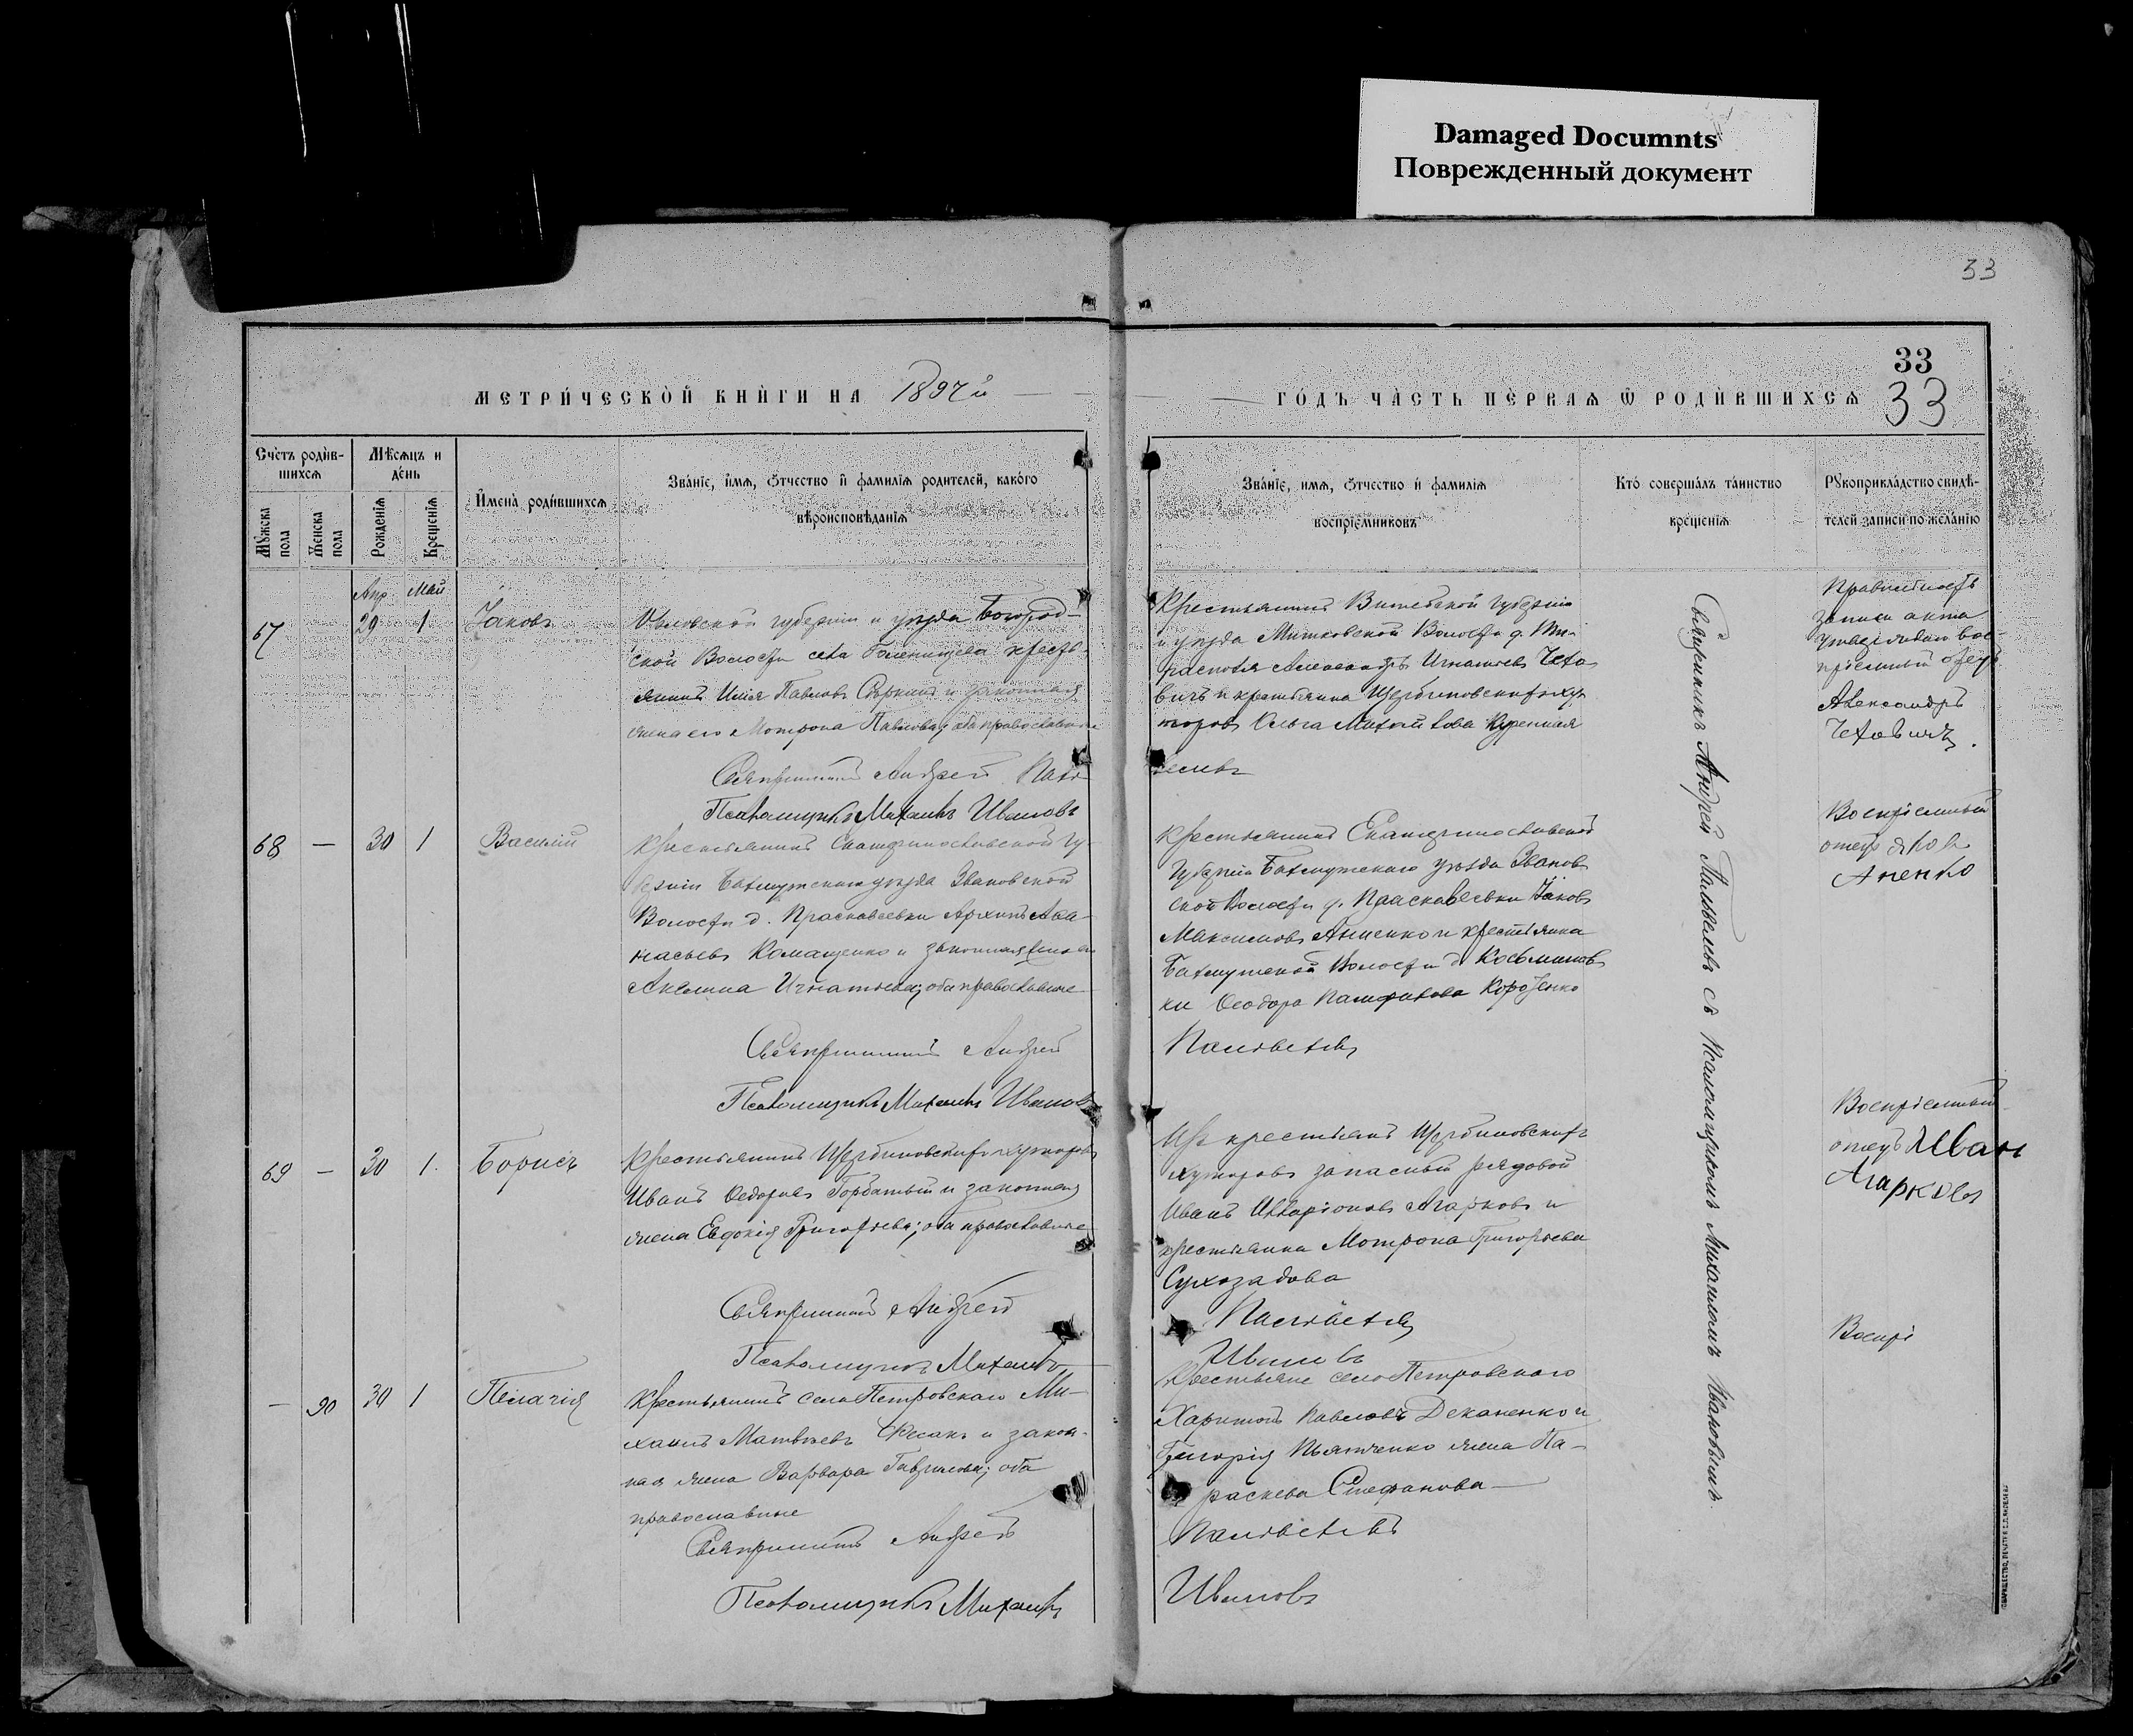 Damaged Documnts
Поврежденный документ
33
33
МЕТРИЧЕСКОЙ КНИГИ НА 1897й
ГОДЪ ЧАСТЬ ПЕРВАЯ Ѿ РОДИВШИХСЯ 33
Счетъ родив-
шихся
Мѣсяцъ и
день
Мужска пола
Женска пола
Рожденія
Крещенія
Имена родившихся
Званіе, имя, ѻтчество и фамилія родителей, какого
вѣроисповѣданія
Званіе, имя, ѻтчество и фамилія
воспріемниковъ
Кто совершалъ таинство
крещенія
Рукоприкладство свидѣ-
телей записи по желанію
Апр Май
67 29 1 Іаковъ
губерніи и уѣзда Богород-
ской Волости села кресть-
янинъ Павловъ и законная
жена его Мотрона Павлова; оба православные
Священникъ Андрей
Псаломщикъ Михаилъ Ивановъ
Крестьянинъ Витебской губерніи
и уѣзда Волости д.
Александръ Игнатьевъ Чехо-
вичъ и крестьянка Щербиновскихъ ху-
торовъ Ольга Куренная
Правильность
записи акта
вос-
пріемный отецъ
Александръ
Чеховичъ.
68 — 30 1 Василій
Крестьянинъ Екатеринославской гу-
берніи Бахмутскаго уѣзда Звановской
Волости д. Прасковеевки Архипъ Афа-
насьевъ Комащенко и законная жена его
Акилина Игнатьева; оба православные
Священникъ Андрей
Псаломщикъ Михаилъ Ивановъ
Крестьянинъ Екатеринославской
Губерніи Бахмутскаго уѣзда Званов-
ской Волости д. Прасковеевки Іаковъ
Максимовъ Аненко и крестьянка
Бахмутской Волости д.
ки Ѳеодора
Воспріемный
отецъ Яковъ
Аненко
69 — 30 1. Борисъ
Крестьянинъ Щербиновскихъ хуторовъ
Иванъ Ѳедоровъ Горбатый и законная
жена Евдокія Григорьева; оба православные
Священникъ Андрей
Псаломщикъ Михаилъ
Изъ крестьянъ Щербиновскихъ
хуторовъ запасный рядовой
Иванъ Илларіоновъ Агарковъ и
крестьянка Мотрона Григорьева
Сухозадова
Ивановъ
Воспріемный
отецъ Иван
Агарковъ
— 90 30 1 Пелагія
Крестьянинъ села Петровскаго Ми-
хаилъ Матвѣевъ и закон-
ная жена Варвара Гаврилова; оба
православные
Священникъ Андрей
Псаломщикъ Михаилъ
Крестьяне села Петровскаго
Харитонъ Павловъ Деканенко и
Григорія жена Па-
раскева Стефанова —
Ивановъ
Воспрі
Священникъ Андрей съ псаломщикомъ Михаиломъ Ивановымъ.